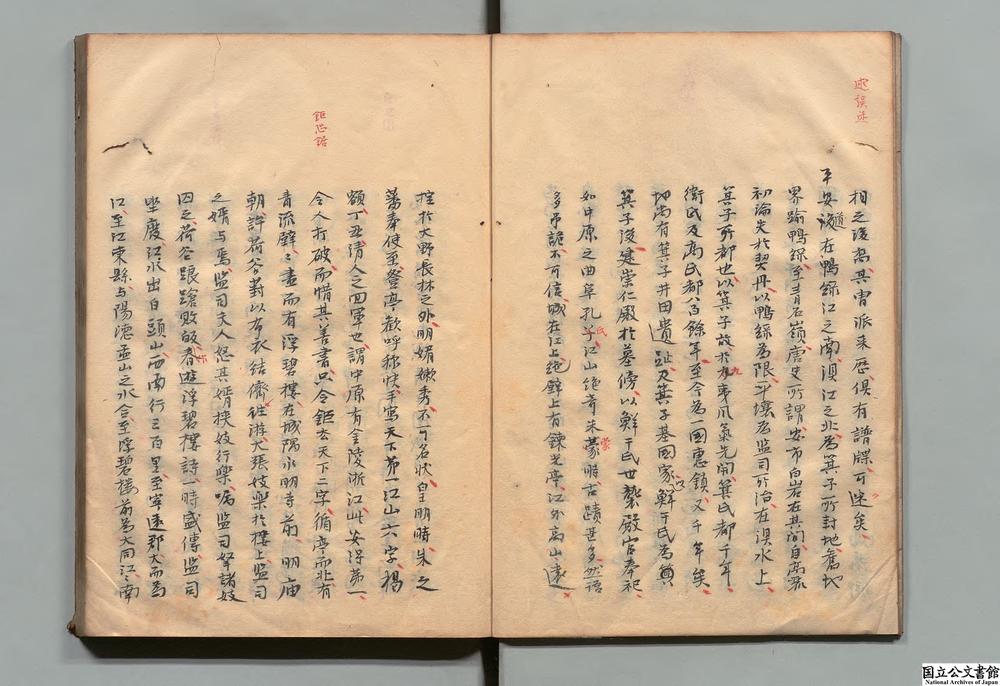 相之後裔其宙派来歴俱有譜牒可迷矣
平安道在鴨緑江之南浿江之北為箕子所封地舊地
界踰鴨緑至青石嶺唐史所謂安市白岩在其間自髙麗
初論失於契丹以鴨緑為限平壌為監司所治在浿水上
箕子所都也以箕子故於九夷風氣先開箕氏都千年
衛氏及髙氏都八百餘年至今為一國恵鎖又千年矣
地尚有箕子井田遺趾乃箕子墓國家以鮮于氏為
箕子後建崇仁殿於墓傍以鮮于氏世襲殿官奉祀
如中原之曲阜孔氏江山絶竒朱蒙時古蹟甚多然語
多吊詭不可信城在江上絶壁上有錬光亭江外髙山遠
鉅恐鋸
控於大野長林之外明媚嫩秀不可名状皇明時朱之
蕃奉使至登亭歓呼称快手寫天下第一江山六字掲
額丁丑清人之回軍也謂中原有金陵浙江此安得第一
令人打破而惜其善書只令鉅去天下二字循亭而北有
青流壁々盡而有浮碧樓在城隅永明寺前明庙
朝許荷谷對以布衣結儕往游大張妓樂於樓上監司
之婿与焉監司夫人怒其婿挟妓行樂嗾監司拏諸妓
囚之荷谷踉蹌敗皈春遊浮碧樓詩一時盛傳監司
坐廢江水出白頭山西南行三百里至寧遠郡大而為
江至江東縣与陽徳孟山之水合至浮碧樓前為大同江々南
国立公文書館
National Archives of Japan